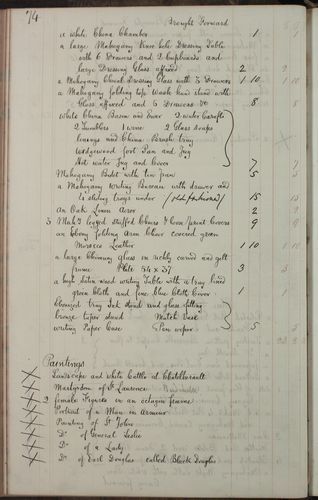 74
Brought Forward
a white China Chamber 1
a large Mahogany Knee hole Dressing Table
with 6 Drawers and 2 Cupboards and
large Dressing Glass affixed 2
a Mahogany Cheval Dressing Glass with 3 Drawers 1 10 1 10
a Mahogany folding top Wash hand stand with
Glass affixed and 2 Drawers &c 8 8
White China Basin and Ewer 2 water Carafts
2 Tumblers 1 wine 2 Glass soaps
and China Brush tray
Wedgewood foot Pan and Jug
Hot water Jug and Cover 7 7
Mahogany Bidet with tin pan 5 5
a Mahogany writing Bureau with drawer and
sliding trays under (old fashioned) 15 15
an Oak Linen 2
3 Mahy legged stuffed Chairs & Covers 9
an Ebony folding Arm Chair covered green
Morocco Leather 1 10 1 10
a large Chimney Glass in richly carved and gilt
frame Plate 54 x 37 3
a writing Table with a tray lined
green Cloth and fine blue Cloth Cover 1
Bronzed tray Ink stand and glass fitting
bronze taper stand Match Vase
writing Paper Case Pen wiper 5 5
Paintings
Landscape and White Cattle at Chatelherault
Martyrdom of St Laurence
3 female Figures in an octagon frame
Portrait of a Man in Armour
Painting of St John
Do of General Leslie
Do of a Lady
Do of Earl Douglas called Black Douglas